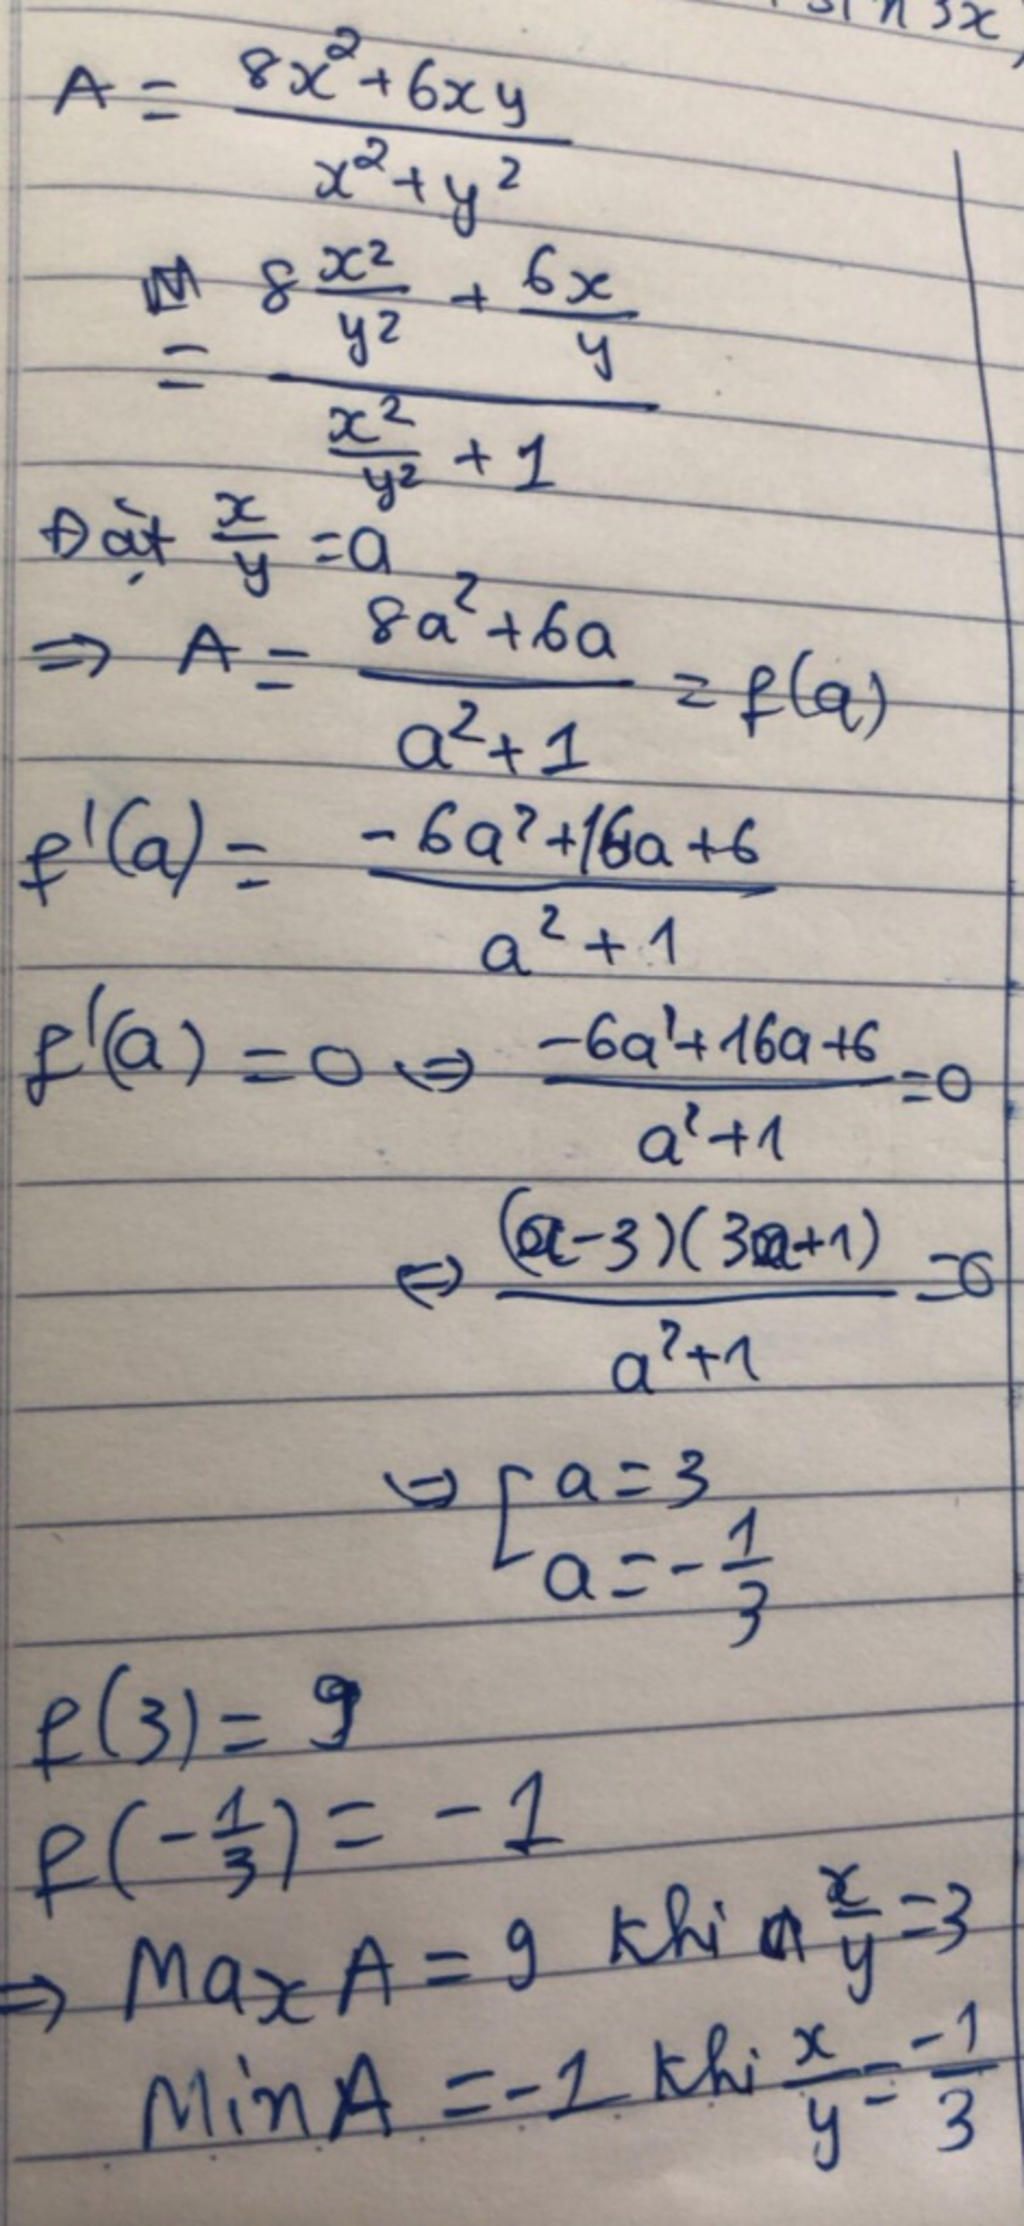 sin 3x
A = \frac{8x^2+6xy}{x^2+y^2}
= \frac{8\frac{x^2}{y^2} + \frac{6x}{y}}{\frac{x^2}{y^2} + 1}
Đặt \frac{x}{y} = a
⇒ A = \frac{8a^2+6a}{a^2+1} = f(a)
f'(a) = \frac{-6a^2+16a+6}{a^2+1}
f'(a) = 0 ⇔ \frac{-6a^2+16a+6}{a^2+1} = 0
⇔ \frac{(a-3)(3a+1)}{a^2+1} = 0
⇔ [ a = 3
a = -\frac{1}{3}
f(3) = 9
f(-\frac{1}{3}) = -1
⇒ Max A = 9 khi \frac{x}{y} = 3
Min A = -1 khi \frac{x}{y} = \frac{-1}{3}